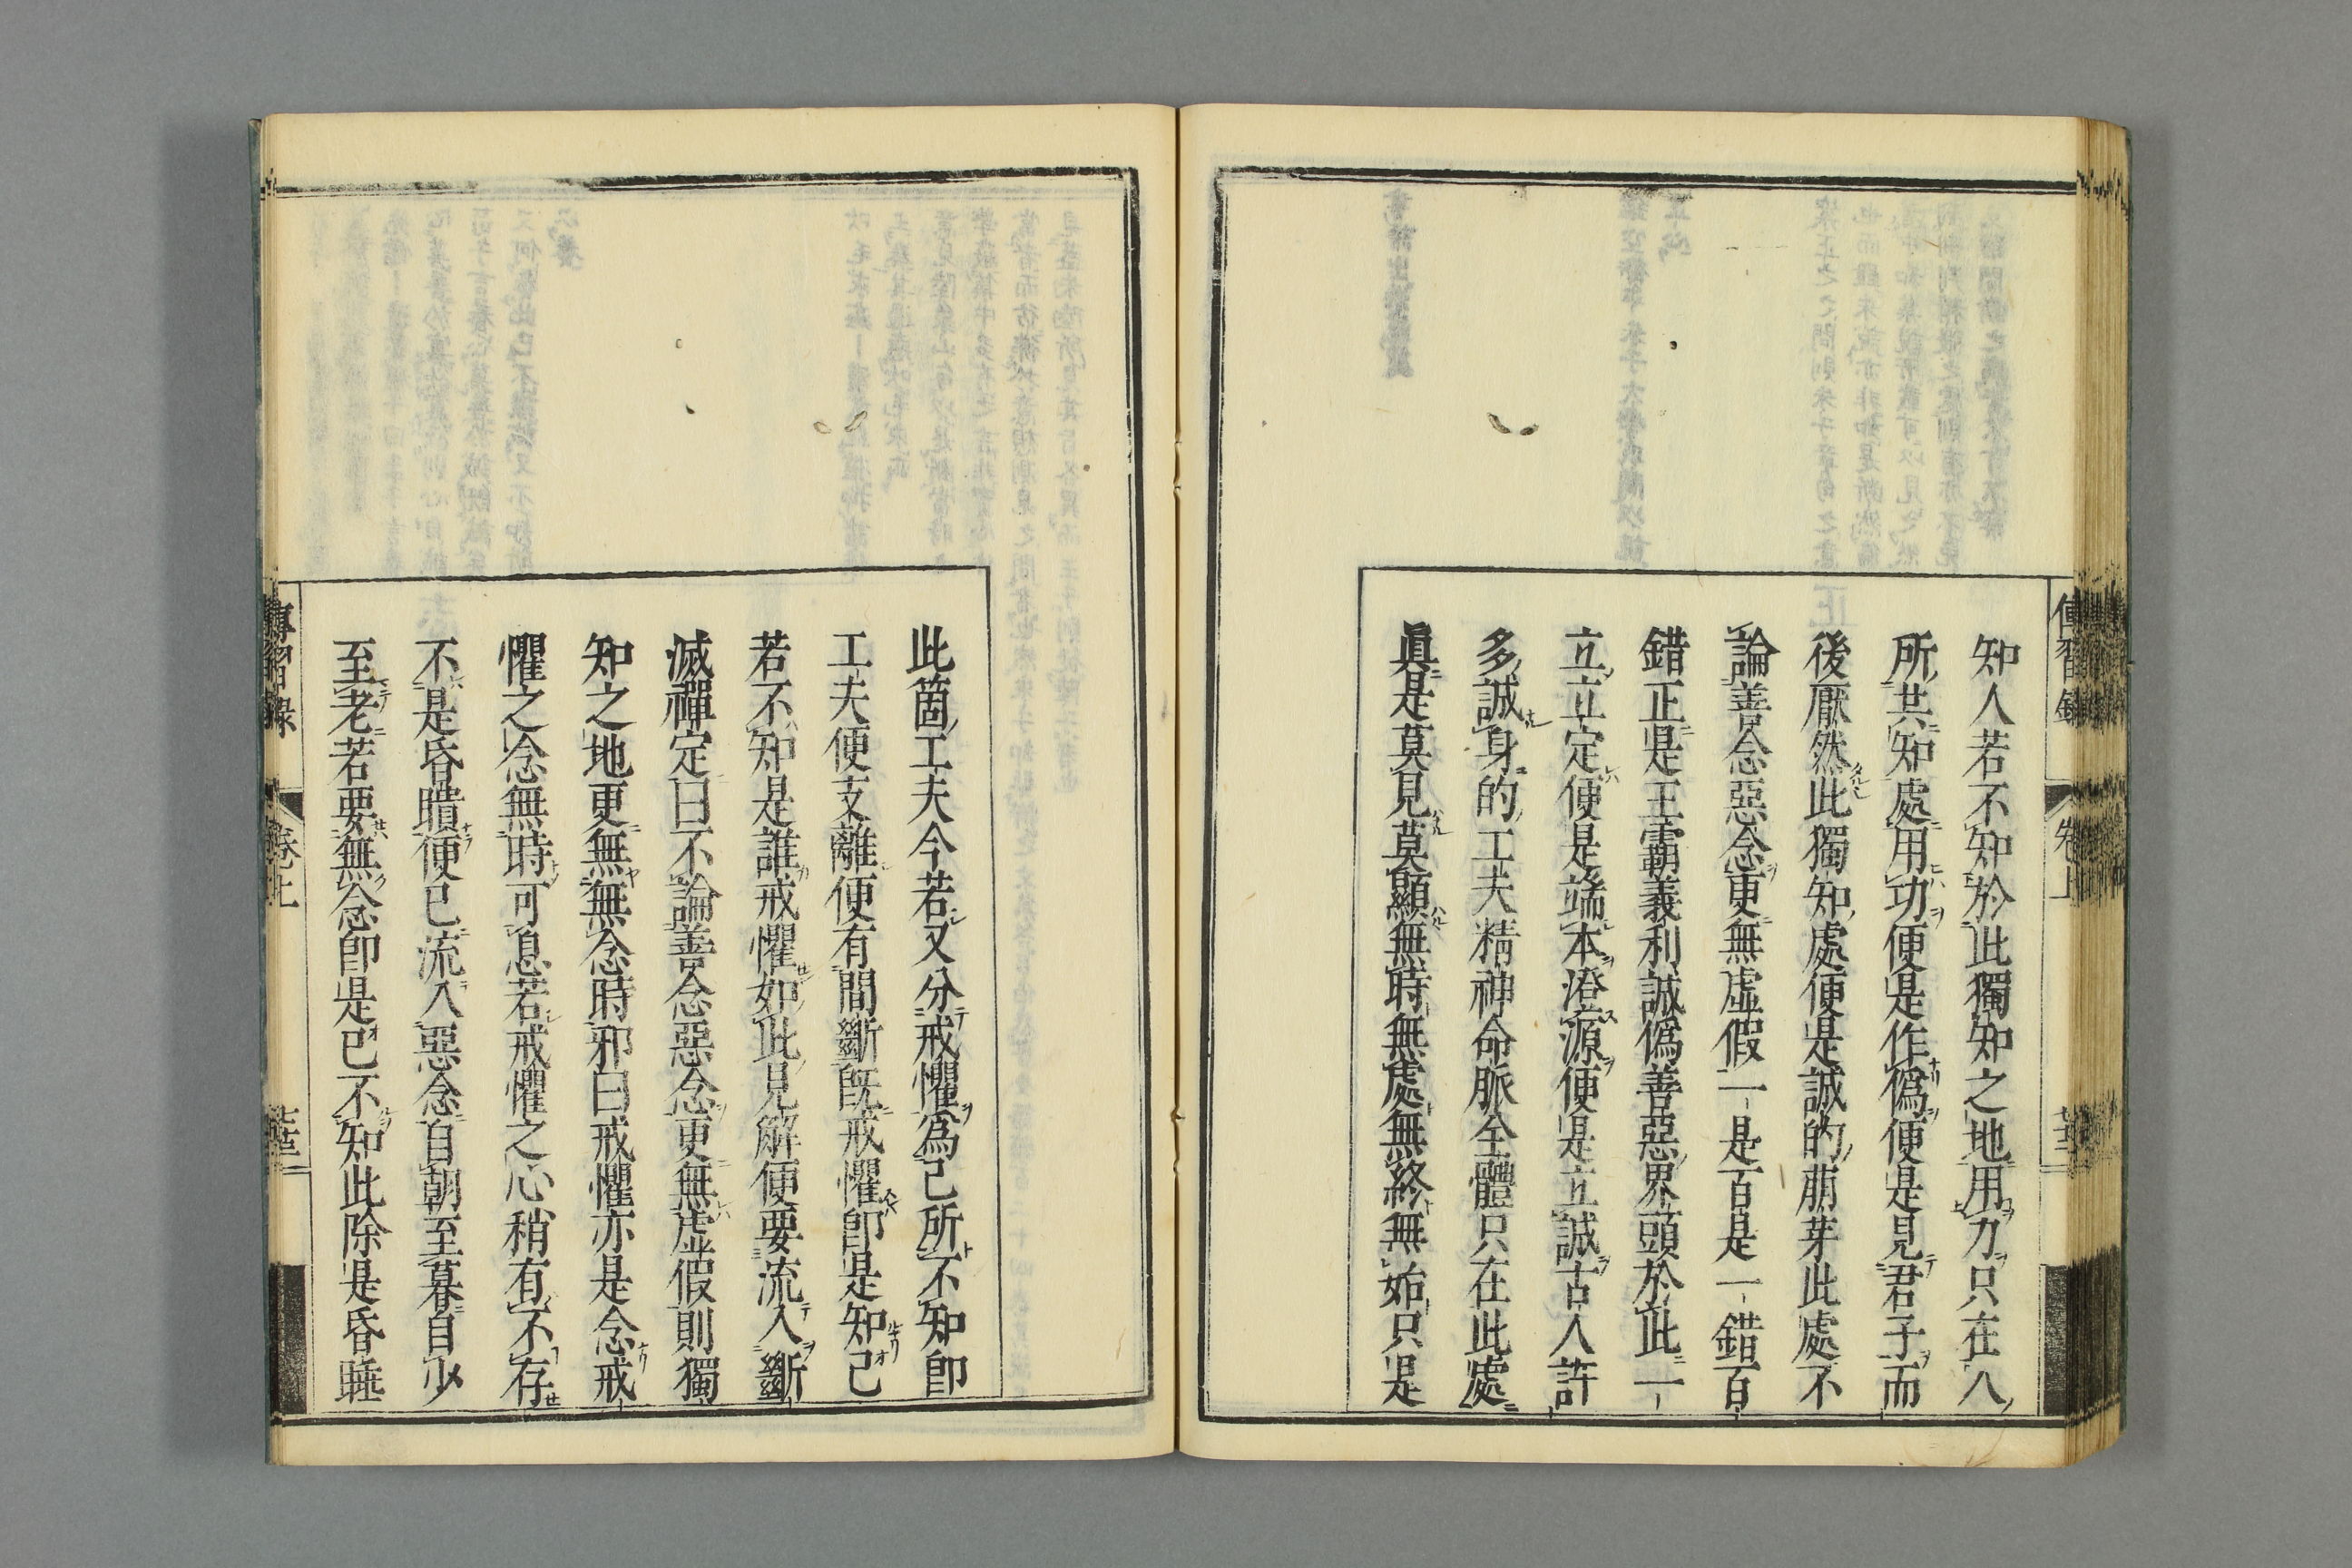 知人若不知於此獨知之地用力只在人
所共知處用功便是作僞便是見君子而
後厭然此獨知處便是誠的萠芽此處不
論善念惡念更無虛假一是百是一錯百
錯正是王霸義利誠僞善惡界頭於此一
立立定便是端本澄源便是立誠古人許
多誠身的工夫精神命脈全體只在此處
眞是莫見莫顯無時無處無終無始只是
此箇工夫今若又分戒懼爲己所不知卽
工夫便支離便有間斷旣戒懼卽是知己
若不知是誰戒懼如此見解便要流入斷
滅禪定曰不論善念惡念更無虛假則獨
知之地更無無念時邪曰戒懼亦是念戒
懼之念無時可息若戒懼之心稍有不存
不是昏瞶便已流入惡念自朝至暮自少
至老若要無念卽是已不知此除是昏睡
傳習錄
卷上